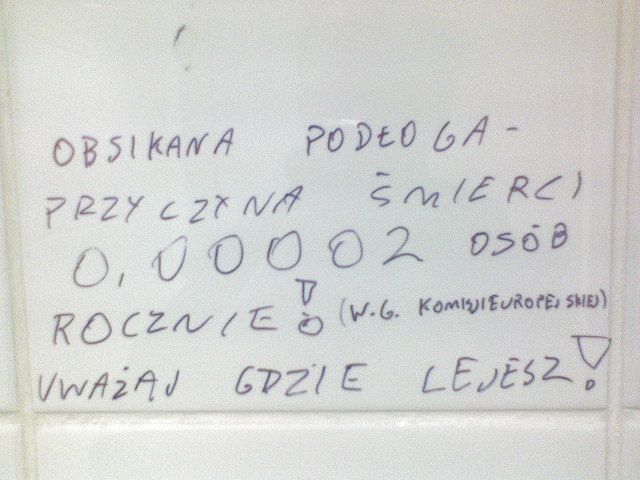 OBSIKANA PODŁOGA -
PRZYCZYNA ŚMIERCI
0,00002 OSÓB
ROCZNIE! (W.G. KOMISJI EUROPEJSKIEJ)
UWAŻAJ GDZIE LEJESZ!